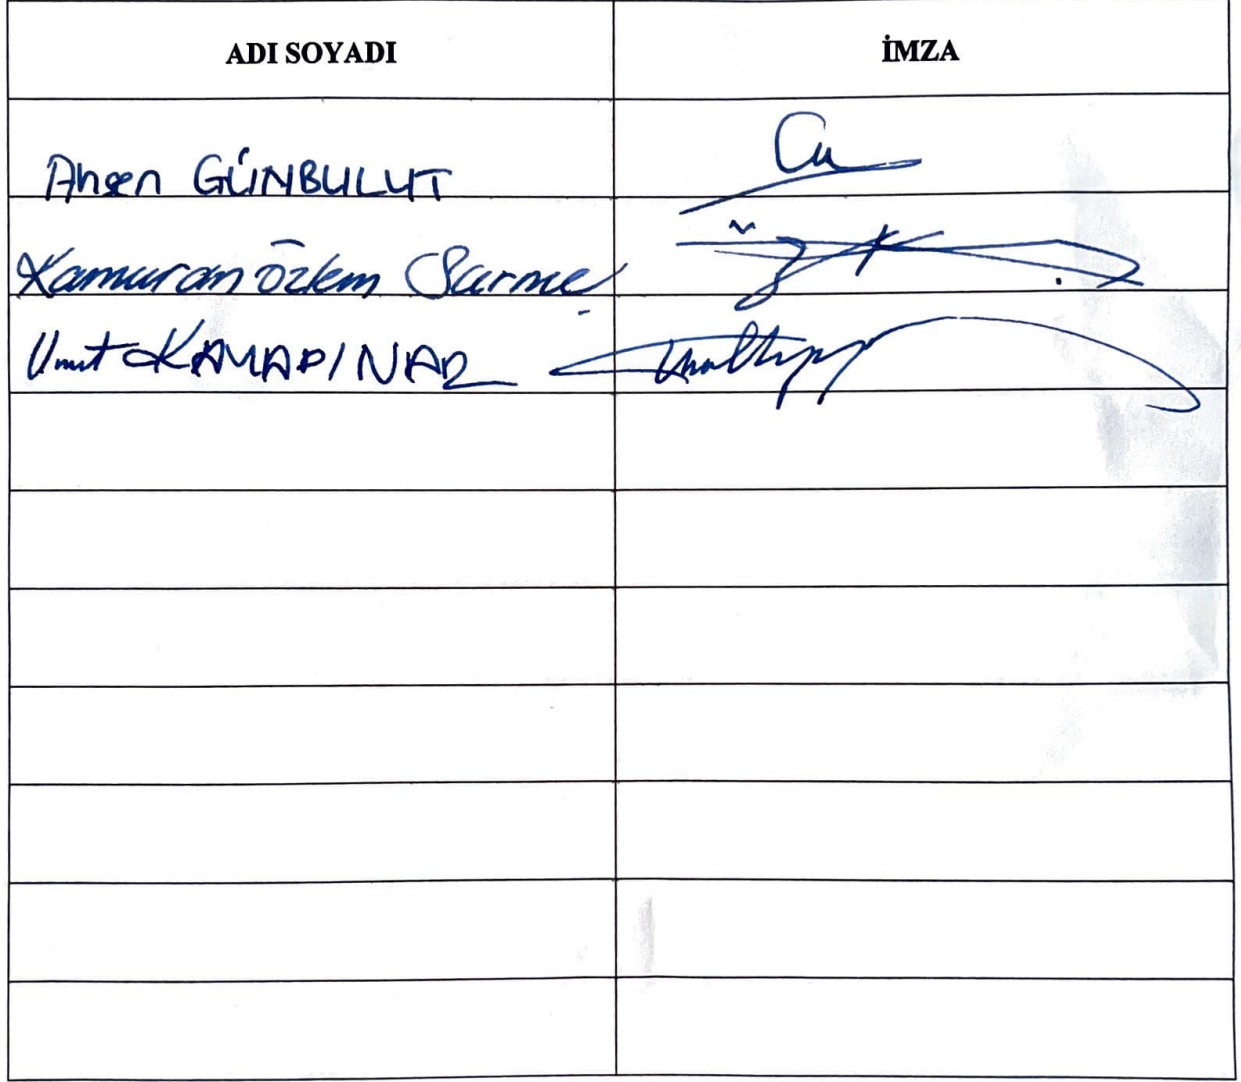 ADI SOYADI İMZA
Ahsen GÜNBULUT
Kamuran Özlem Sarmış
Umut KAYAPINAR